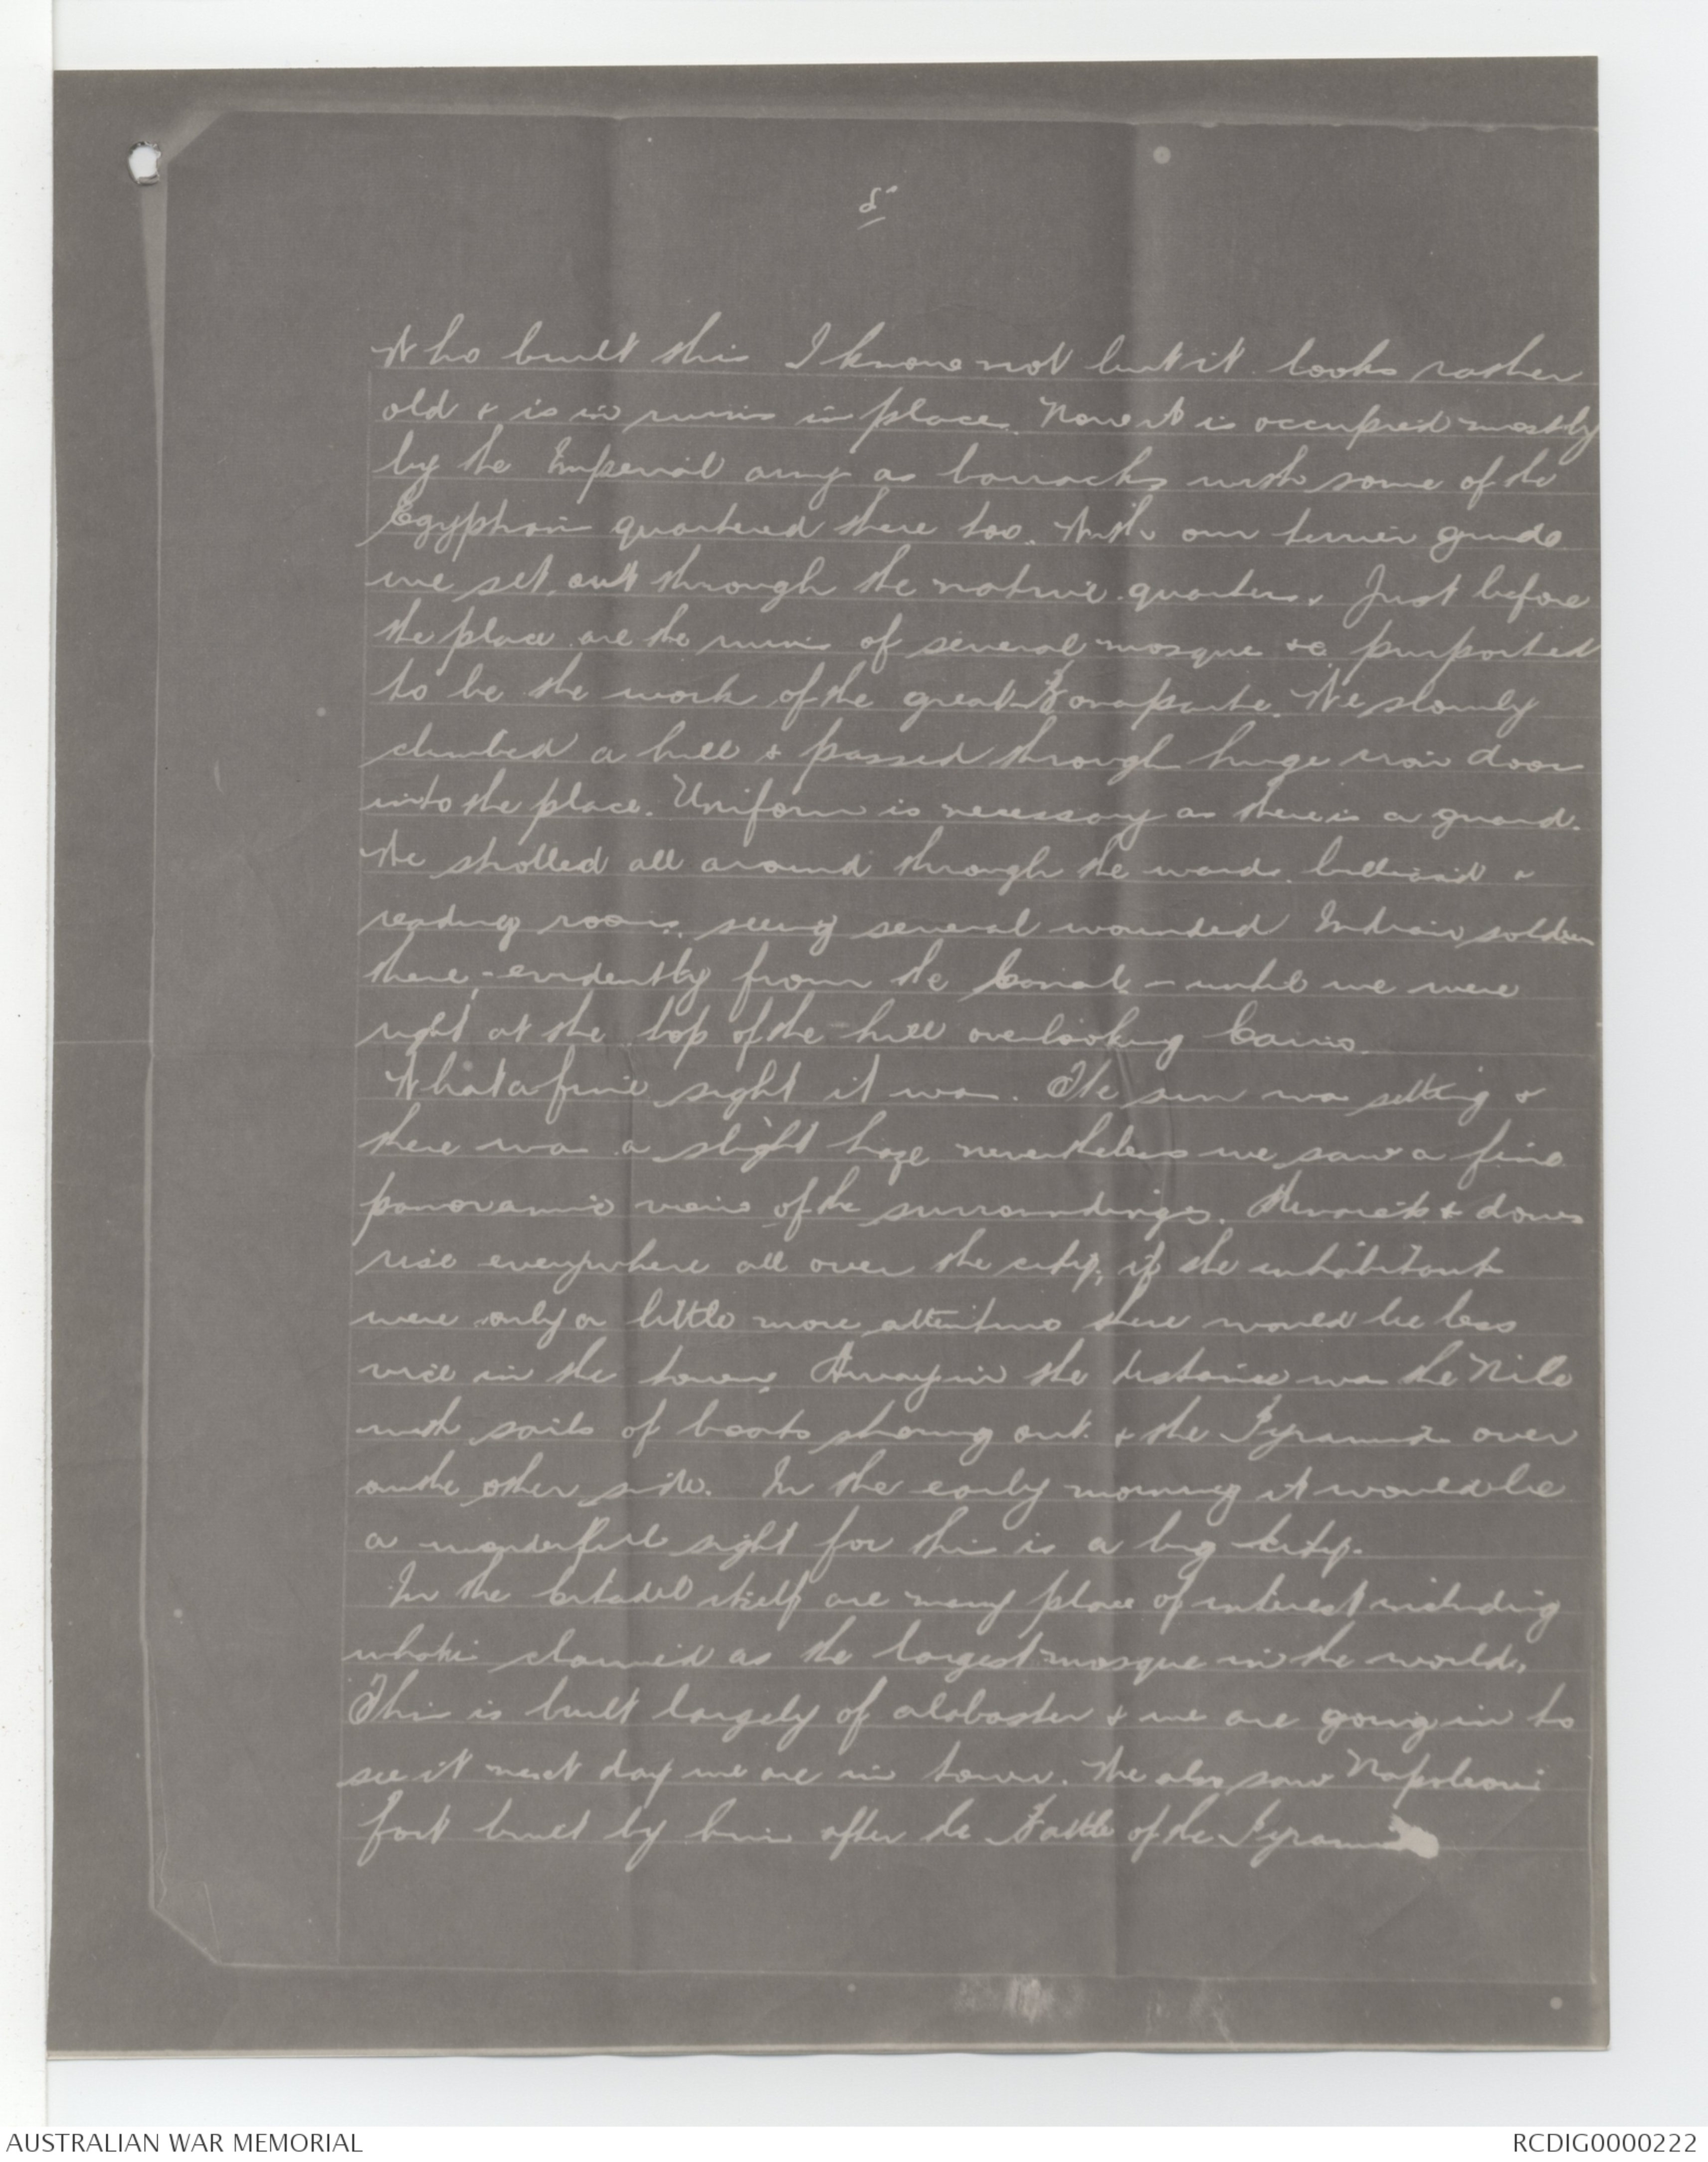 5
Who built this I know not but it looks rather
old & is in ruins in place. Now it is occupied mostly
by the Imperial army as barracks with some of the
Egyptian quartered there too. With our terrier guide
we set out through the native quarters. Just before
the place are the ruins of several mosque &c purported
to be the work of the great Bonaparte. We slowly
climbed a hill & passed through huge iron door
into the place. Uniform is necessary as there is a guard.
We strolled all around through the wards, billiard &
reading rooms, seeing several wounded Indian soldiers
there - evidently from the Canal - until we were
right at the top of the hill overlooking Cairo.
What a fine sight it was. The sun was setting &
there was a slight haze nevertheless we saw a fine
panoramic view of the surroundings. Minarets & domes
rise everywhere all over the city, if the inhabitants
were only a little more attentive there would be less
vice in the town. Away in the distance was the Nile
with sails of boats showing out & the Pyramids over
on the other side. In the early morning it would be
a wonderful sight for this is a big city.
In the Citadel itself are many place of interest including
what is claimed as the largest mosque in the world.
This is built largely of alabaster & we are going in to
see it next day we are in town. We also saw Napoleons
fort built by him after the Battle of the Pyramids
AUSTRALIAN WAR MEMORIAL
RCDIG0000222